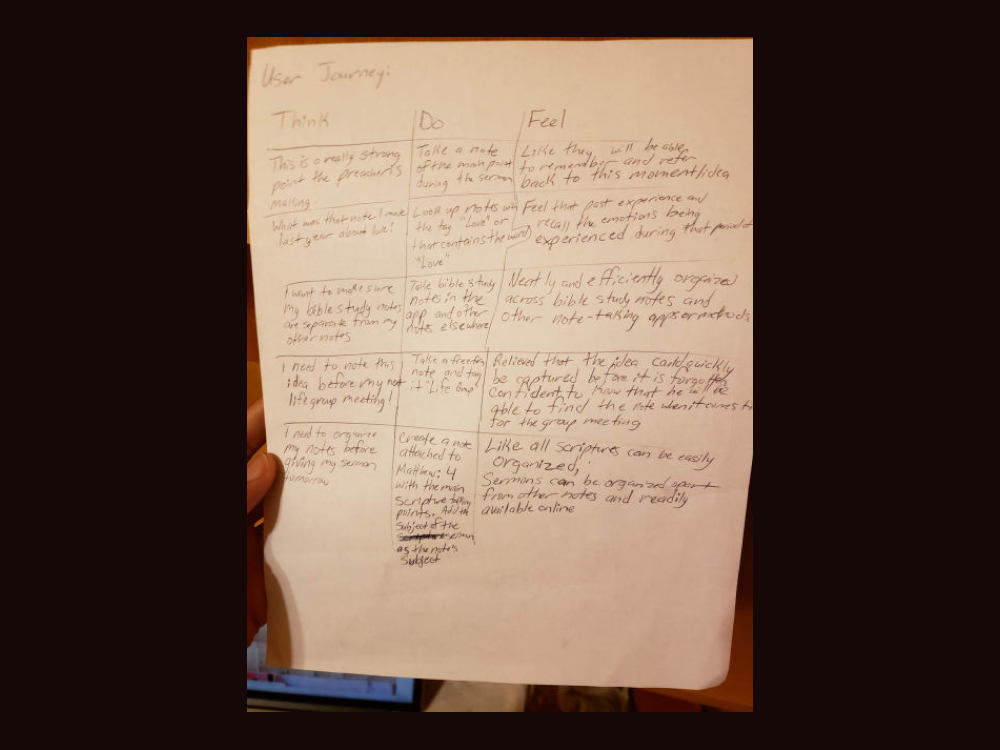 User Journey:
Think
Do
Feel
This is a really strong
point the preacher's
making.
Take a note
of the main point
during the sermon
Like they will be able
to remember and refer
back to this moment/idea
What was that note I made
last year about love?
Look up notes with
the tag "Love" or
that contains the word
"Love"
Feel that past experience and
recall the emotions being
experienced during that period of
I want to make sure
my bible study notes
are separate from my
other notes
Take bible study
notes in the
app and other
notes elsewhere
Neatly and efficiently organized
across bible study notes and
other note-taking apps or methods
I need to note this
idea before my
life group meeting!
Take a freeform
note and tag
it "Life Group"
Relieved that the idea could quickly
be captured before it is forgotten
Confident to know that he will be
able to find the note when it comes
for the group meeting
I need to organize
my notes before
giving my sermon
tomorrow
Create a note
attached to
Matthew: 4
with the main
scripture
points. Add the
subject of the
sermon
as the note's
subject
Like all scriptures can be easily
organized,
Sermons can be organized apart
from other notes and readily
available online